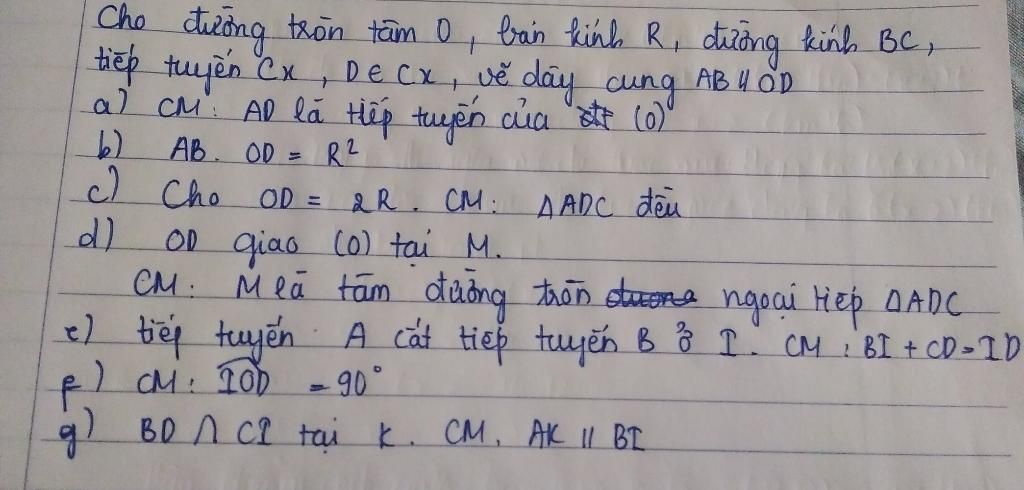 Cho đường tròn tâm O, bán kính R, đường kính BC,
tiếp tuyến Cx, D∈Cx, vẽ dây cung AB // OD
a) CM: AD là tiếp tuyến của (O)
b) AB. OD = R²
c) Cho OD = 2R. CM: ΔADC đều
d) OD giao (O) tại M.
CM: M là tâm đường tròn ngoại tiếp ΔADC
e) tiếp tuyến A cắt tiếp tuyến B ở I. CM: BI + CD = ID
f) CM: IOD = 90°
g) BD ∩ CI tại K. CM, AK // BI